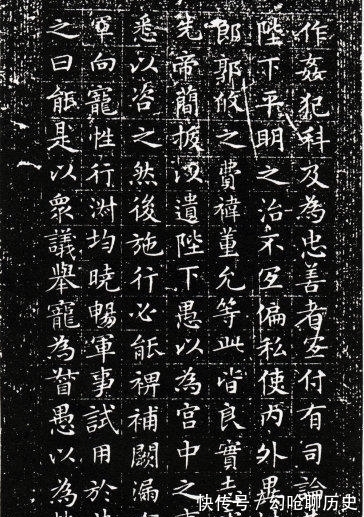 作姦犯科及為忠善者宜付有司論
陛下平明之治不宜偏私使內外異
郎郭攸之費禕董允等此皆良實志
先帝簡拔以遺陛下愚以為宮中之
悉以咨之然後施行必能裨補闕漏
軍向寵性行淑均曉暢軍事試用於
之曰能是以眾議舉寵為督愚以為
快传号/幻呛聊历史